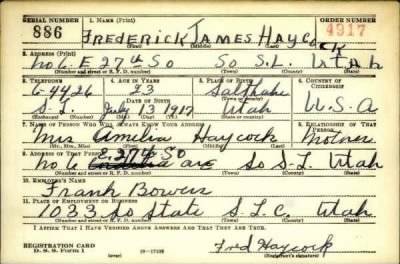 SERIAL NUMBER 1. NAME (Print) ORDER NUMBER
886 FREDERICK JAMES HAYCOCK 4917
(First) (Middle) (Last)
2. ADDRESS (Print)
No 6 E 27th So So S.L. UTAH
(Number and street or R. F. D. number) (Town) (County) (State)
3. TELEPHONE 4. AGE IN YEARS 5. PLACE OF BIRTH 6. COUNTRY OF CITIZENSHIP
6-4426 23 Salt Lake
DATE OF BIRTH (Town or county)
S.L. July 13 1917 Utah U.S.A
(Exchange) (Mo.) (Day) (Yr.) (State or country)
7. NAME OF PERSON WHO WILL ALWAYS KNOW YOUR ADDRESS 8. RELATIONSHIP OF THAT PERSON
Mrs Amelia Haycock Mother
(Mr., Mrs., Miss) (First) (Middle) (Last)
9. ADDRESS OF THAT PERSON E. 27th So
No 6 ave So S.L Utah
(Number and street or R. F. D. number) (Town) (County) (State)
10. EMPLOYER'S NAME
Frank Bowen
11. PLACE OF EMPLOYMENT OR BUSINESS
1033 So State S.L.C. Utah
(Number and street or R. F. D. number) (Town) (County) (State)
I AFFIRM THAT I HAVE VERIFIED ABOVE ANSWERS AND THAT THEY ARE TRUE.
REGISTRATION CARD
D. S. S. Form 1 Fred Haycock
(Registrant's signature)